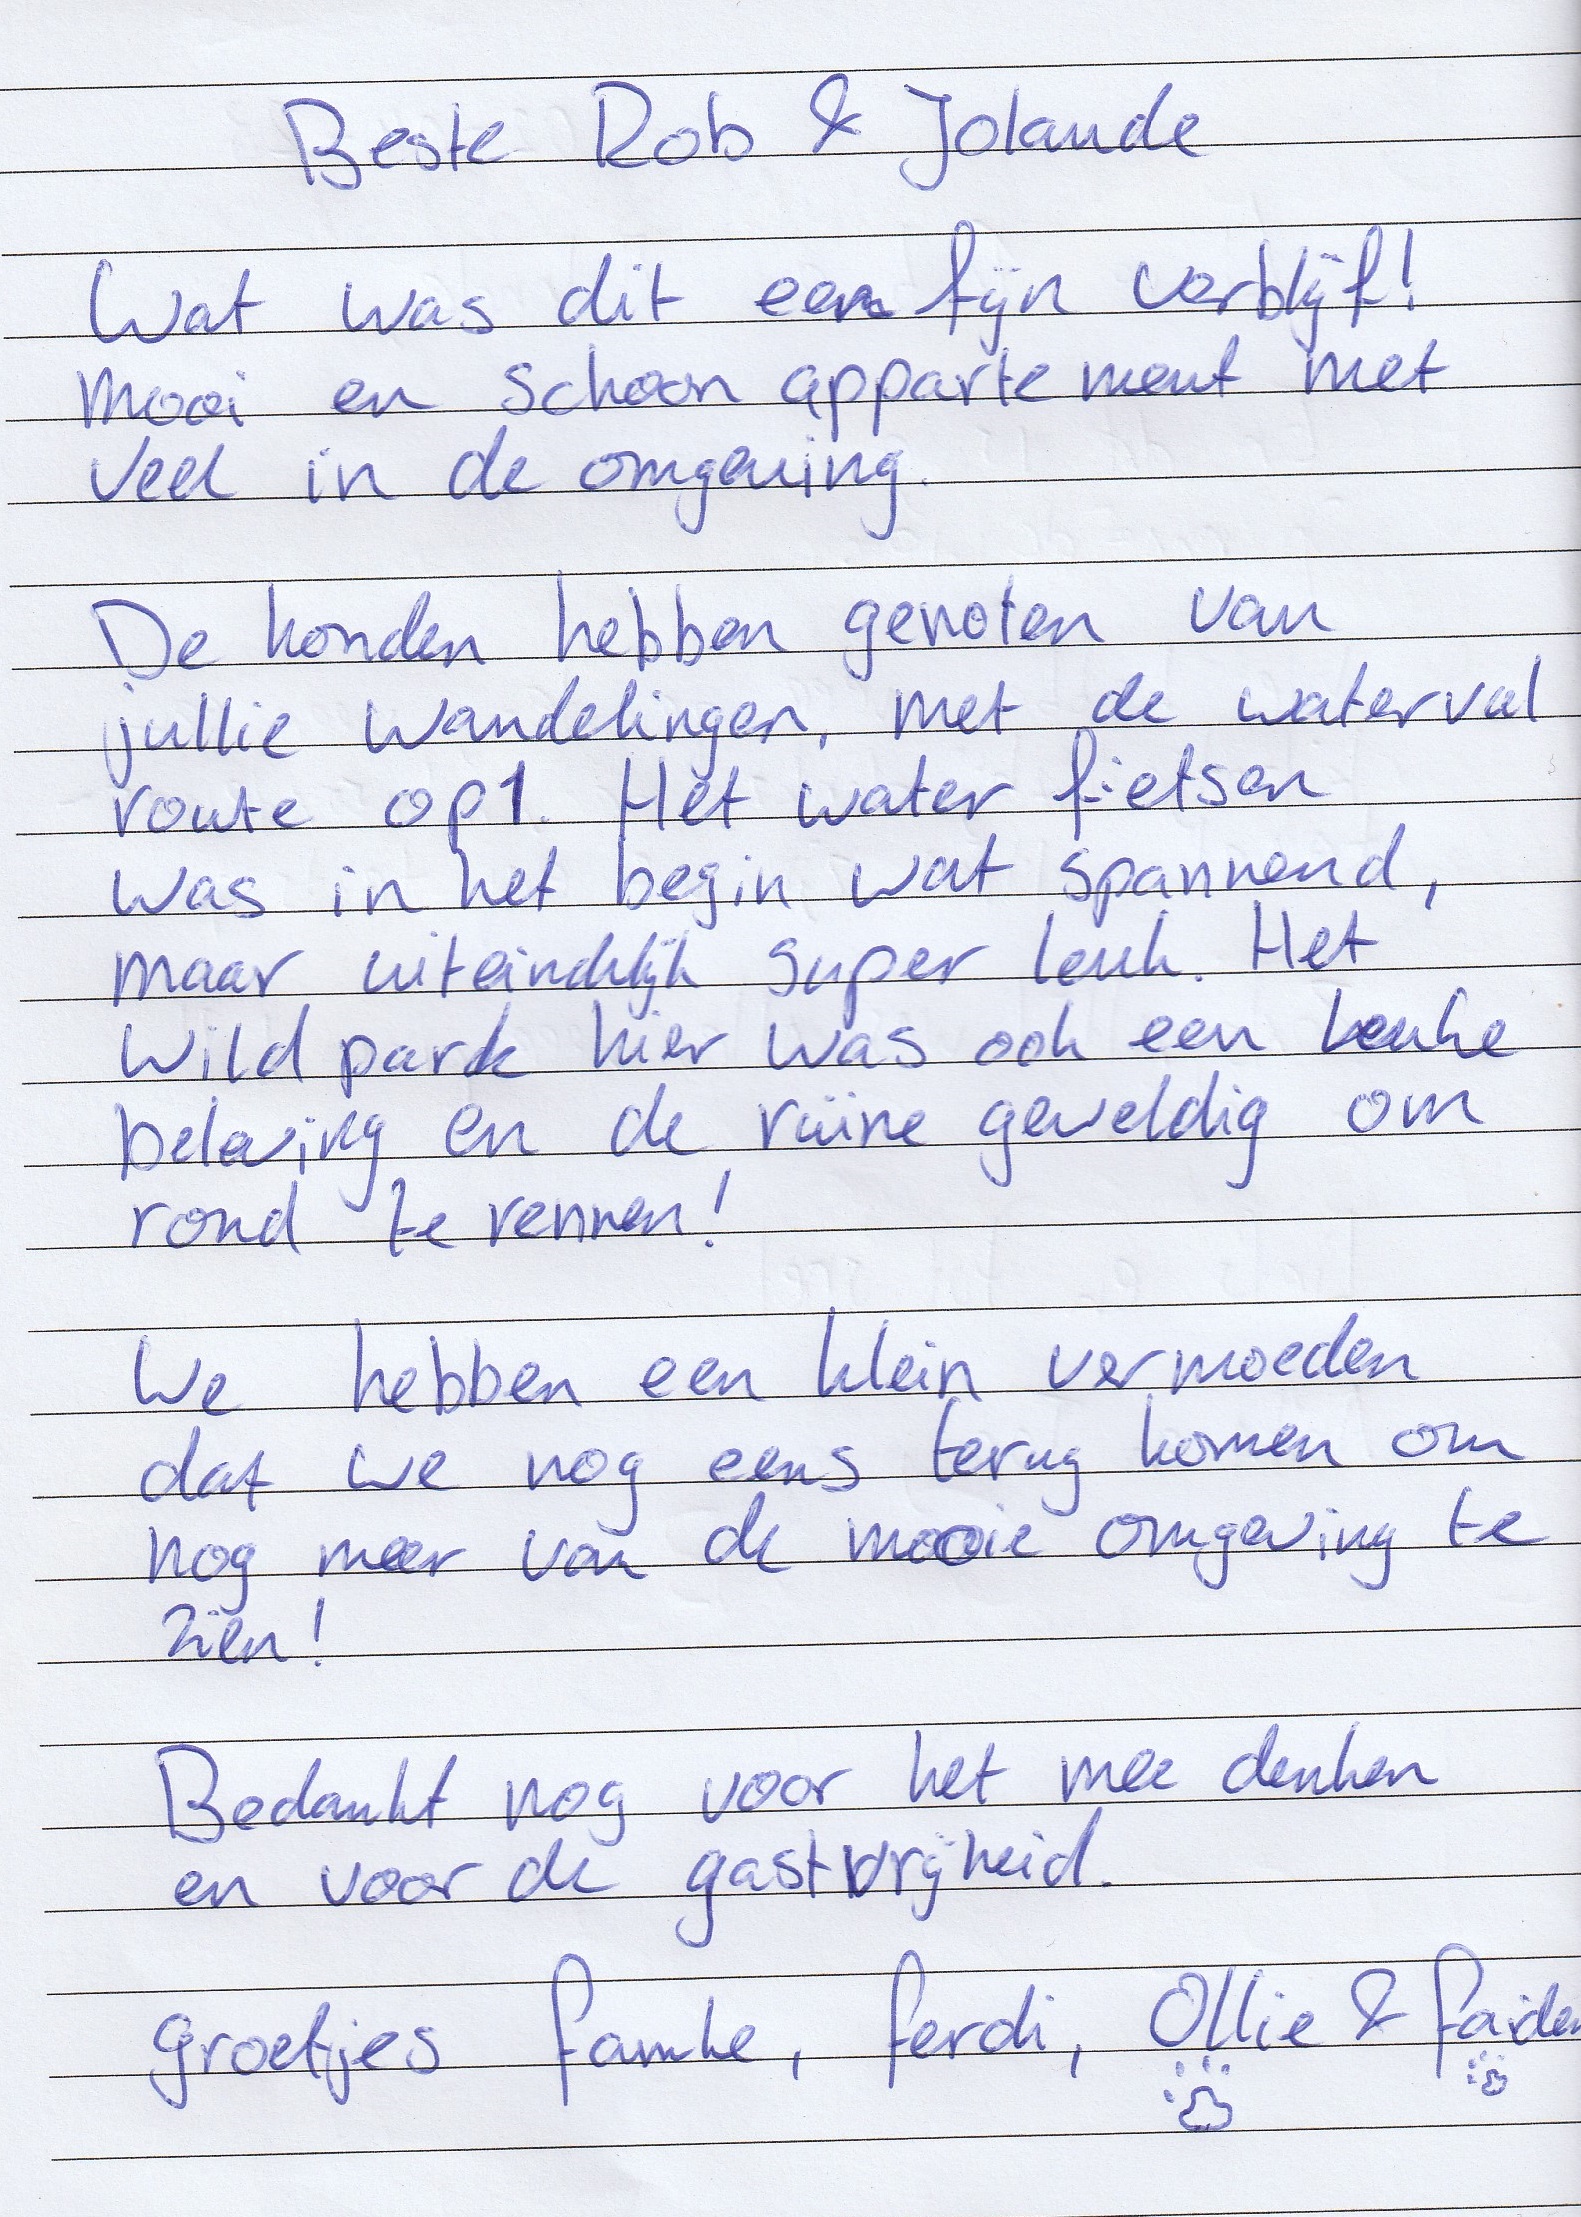 Beste Rob & Jolande
Wat was dit een fijn verblijf!
Mooi en schoon appartement met
veel in de omgeving.
De honden hebben genoten van
jullie wandelingen, met de waterval
route op 1. Het water fietsen
was in het begin wat spannend,
maar uiteindelijk super leuk. Het
Wild park hier was ook een leuke
beleving en de ruïne geweldig om
rond te rennen!
We hebben een klein vermoeden
dat we nog eens terug komen om
nog meer van de mooie omgeving te
zien!
Bedankt nog voor het mee denken
en voor de gastvrijheid.
groetjes Famke, Ferdi, Ollie &